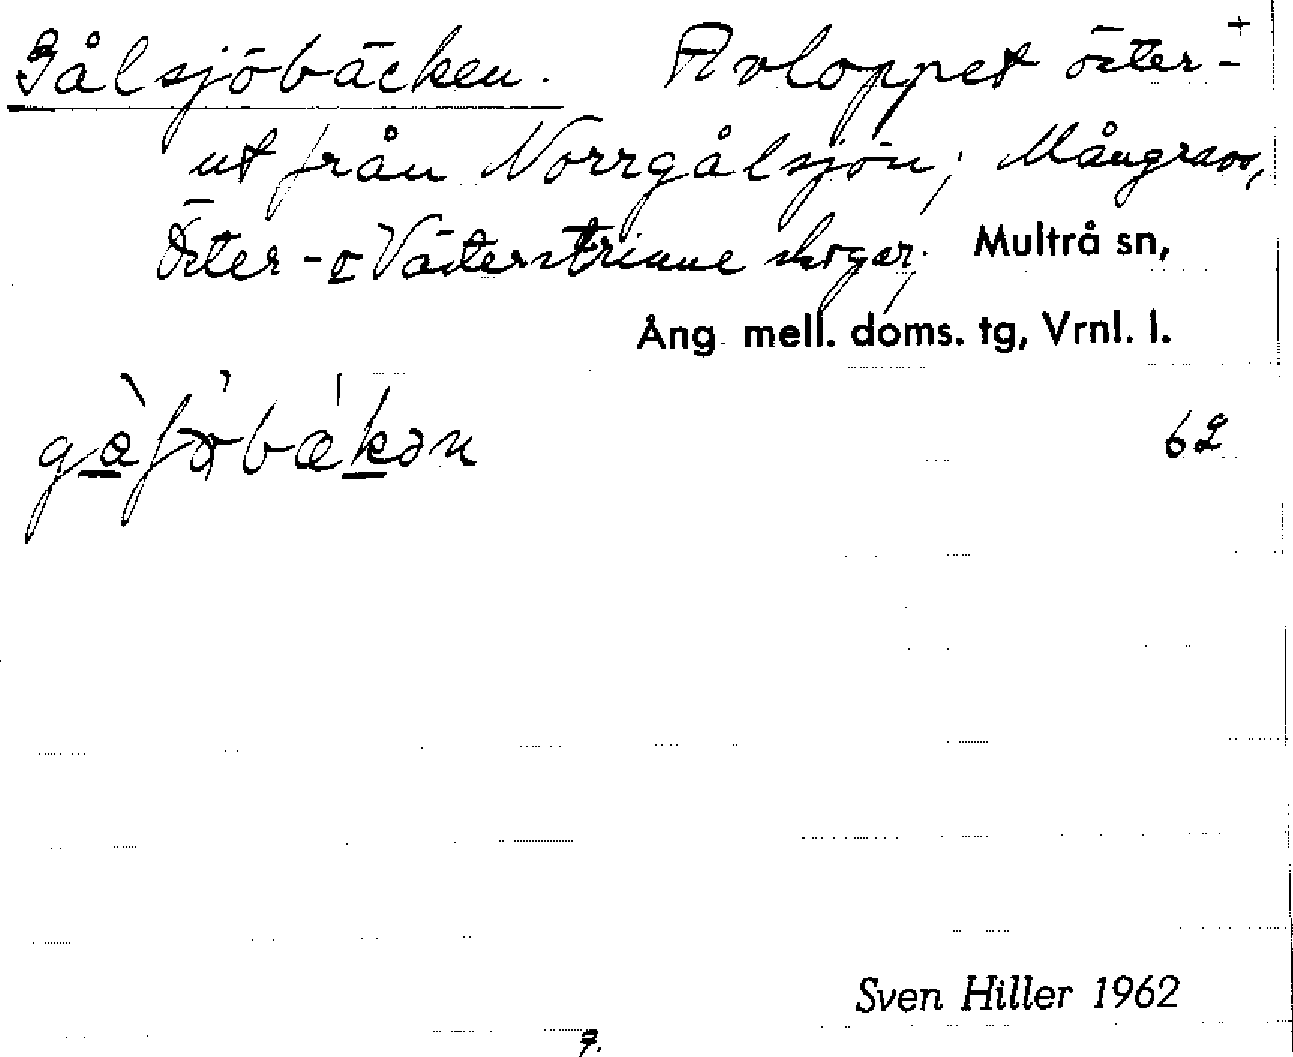 Gålsjöbäcken. Avloppet öster- +
ut från Norrgålsjön; Mångrav,
Öster- o Västerstrinne skogar, Multrå sn,
Ång mell. doms. tg, Vrnl. l.
62
Sven Hiller 1962
7.